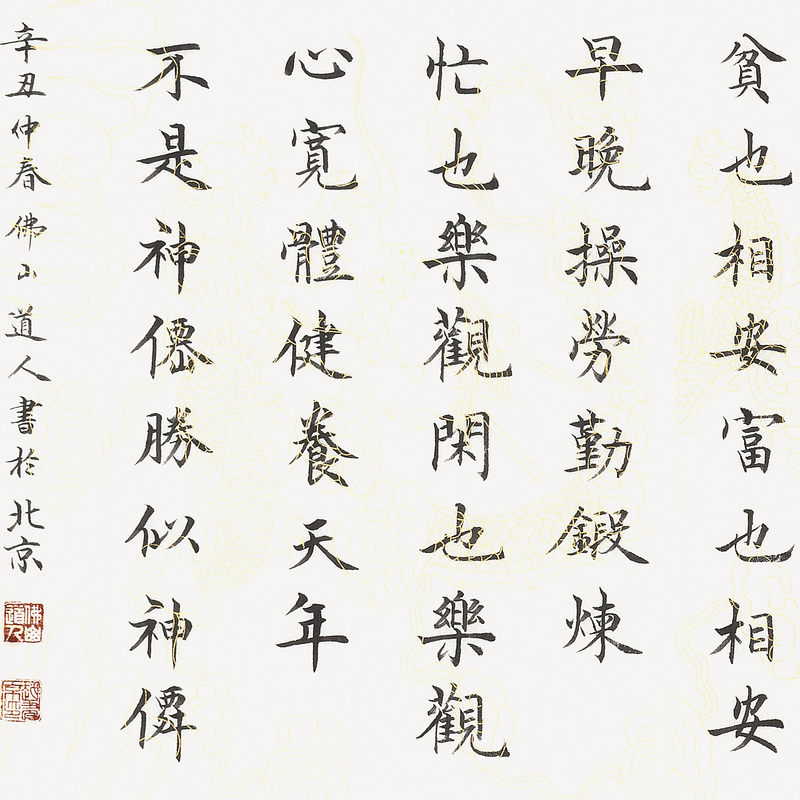 貧也相安富也相安
早晚操勞勤鍛煉
忙也樂觀閑也樂觀
心寬體健養天年
不是神僊勝似神僊
辛丑仲春佛山道人書於北京
佛山道人